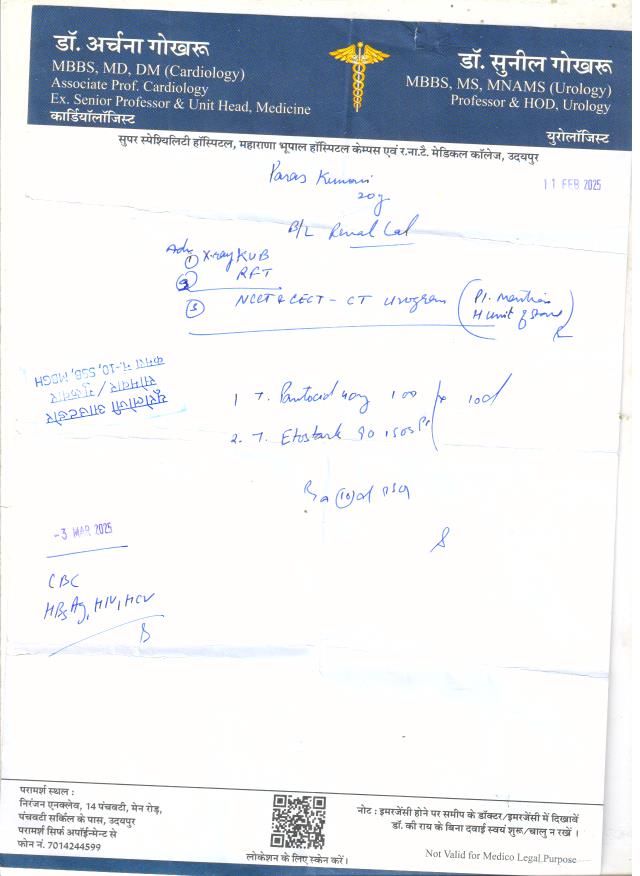 डॉ. अर्चना गोखरू
MBBS, MD, DM (Cardiology)
Associate Prof. Cardiology
Ex. Senior Professor & Unit Head, Medicine
कार्डियॉलॉजिस्ट
डॉ. सुनील गोखरू
MBBS, MS, MNAMS (Urology)
Professor & HOD, Urology
युरोलॉजिस्ट
सुपर स्पेशियलिटी हॉस्पिटल, महाराणा भूपाल हॉस्पिटल केम्पस एवं र.ना.टै. मेडिकल कॉलेज, उदयपुर
Paras Kumari
20y
11 FEB 2025
B/L Renal Cal
Adv
① X-ray KUB
② RFT
③ NCCT & CECT - CT Urogram (Pl. mention H unit of stone)
यूरोलोजी आउटडोर
सोमवार / शुक्रवार
कमरा नं.-10, SSB, MBGH
1 T. Pantocid 40mg 1 OD x 10d
2. T. Etostark 90
-3 MAR 2025
CBC
HBsAg, HIV, HCV
परामर्श स्थल :
निरंजन एनक्लेव, 14 पंचवटी, मेन रोड़,
पंचवटी सर्किल के पास, उदयपुर
परामर्श सिर्फ अपॉईन्मेन्ट से
फोन नं. 7014244599
लोकेशन के लिए स्केन करें।
नोट : इमरजेंसी होने पर समीप के डॉक्टर/इमरजेंसी में दिखावें
डॉ. की राय के बिना दवाई स्वयं शुरू/चालु न रखें ।
Not Valid for Medico Legal Purpose